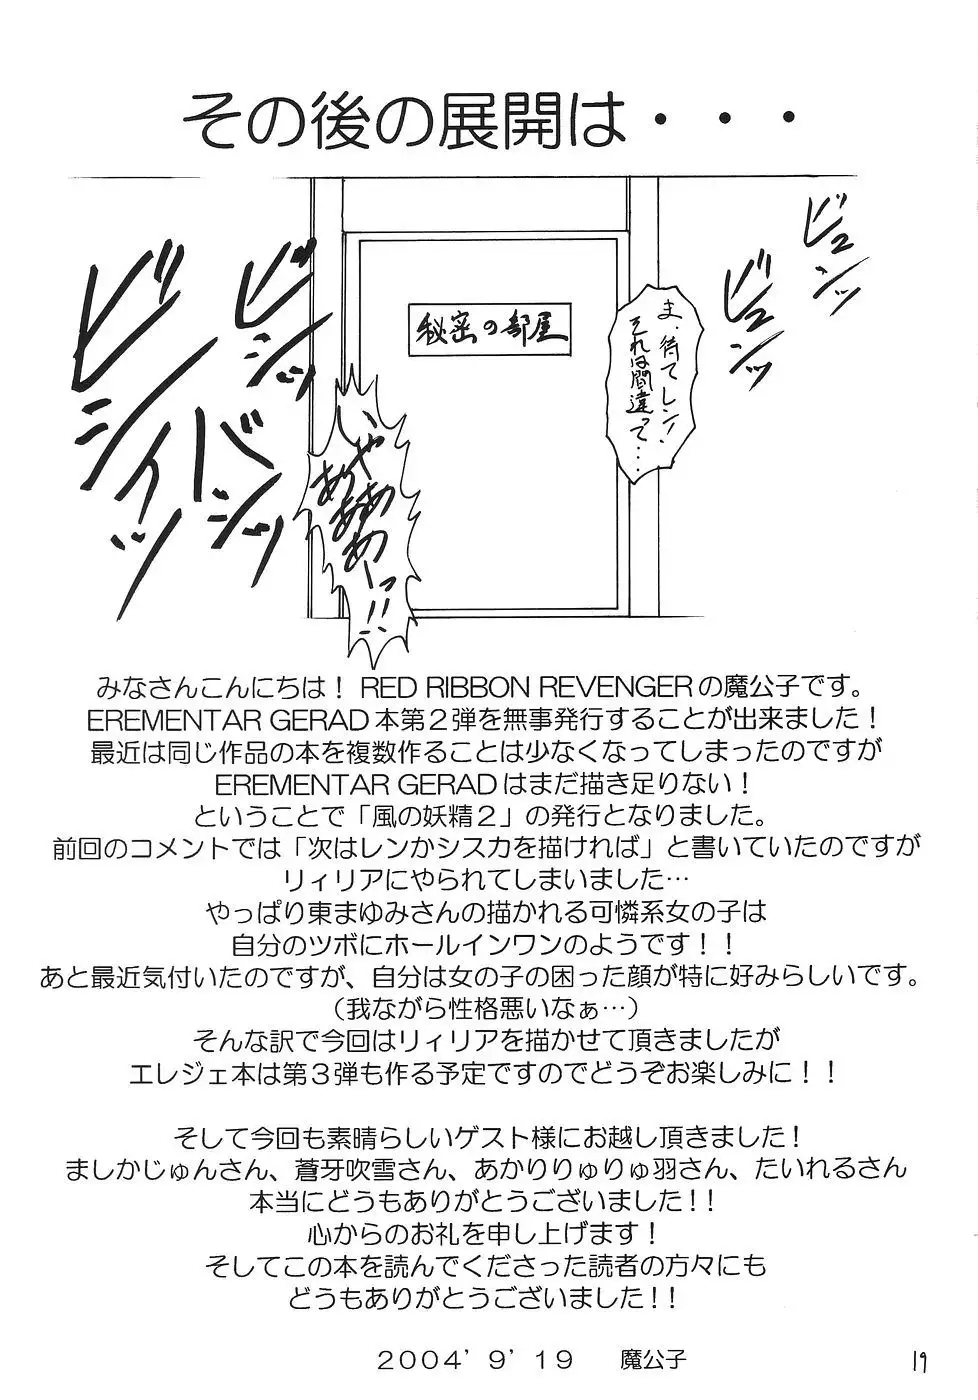 その後の展開は・・・
ビュンッ
ビュンッ
ま、待てレン!
それは間違って・・・・
秘密の部屋
ビシッ
バシッ
ビシィッ
いやあ
ああああーっ!!
みなさんこんにちは！ RED RIBBON REVENGERの魔公子です。
EREMENTAR GERAD本第２弾を無事発行することが出来ました！
最近は同じ作品の本を複数作ることは少なくなってしまったのですが
EREMENTAR GERADはまだ描き足りない！
ということで「風の妖精２」の発行となりました。
前回のコメントでは「次はレンかシスカを描ければ」と書いていたのですが
リィリアにやられてしまいました…
やっぱり東まゆみさんの描かれる可憐系女の子は
自分のツボにホールインワンのようです！！
あと最近気付いたのですが、自分は女の子の困った顔が特に好みらしいです。
（我ながら性格悪いなぁ…）
そんな訳で今回はリィリアを描かせて頂きましたが
エレジェ本は第３弾も作る予定ですのでどうぞお楽しみに！！
そして今回も素晴らしいゲスト様にお越し頂きました！
ましかじゅんさん、蒼牙吹雪さん、あかりりゅりゅ羽さん、たいれるさん
本当にどうもありがとうございました！！
心からのお礼を申し上げます！
そしてこの本を読んでくださった読者の方々にも
どうもありがとうございました！！
２００４’９’１９　魔公子
19